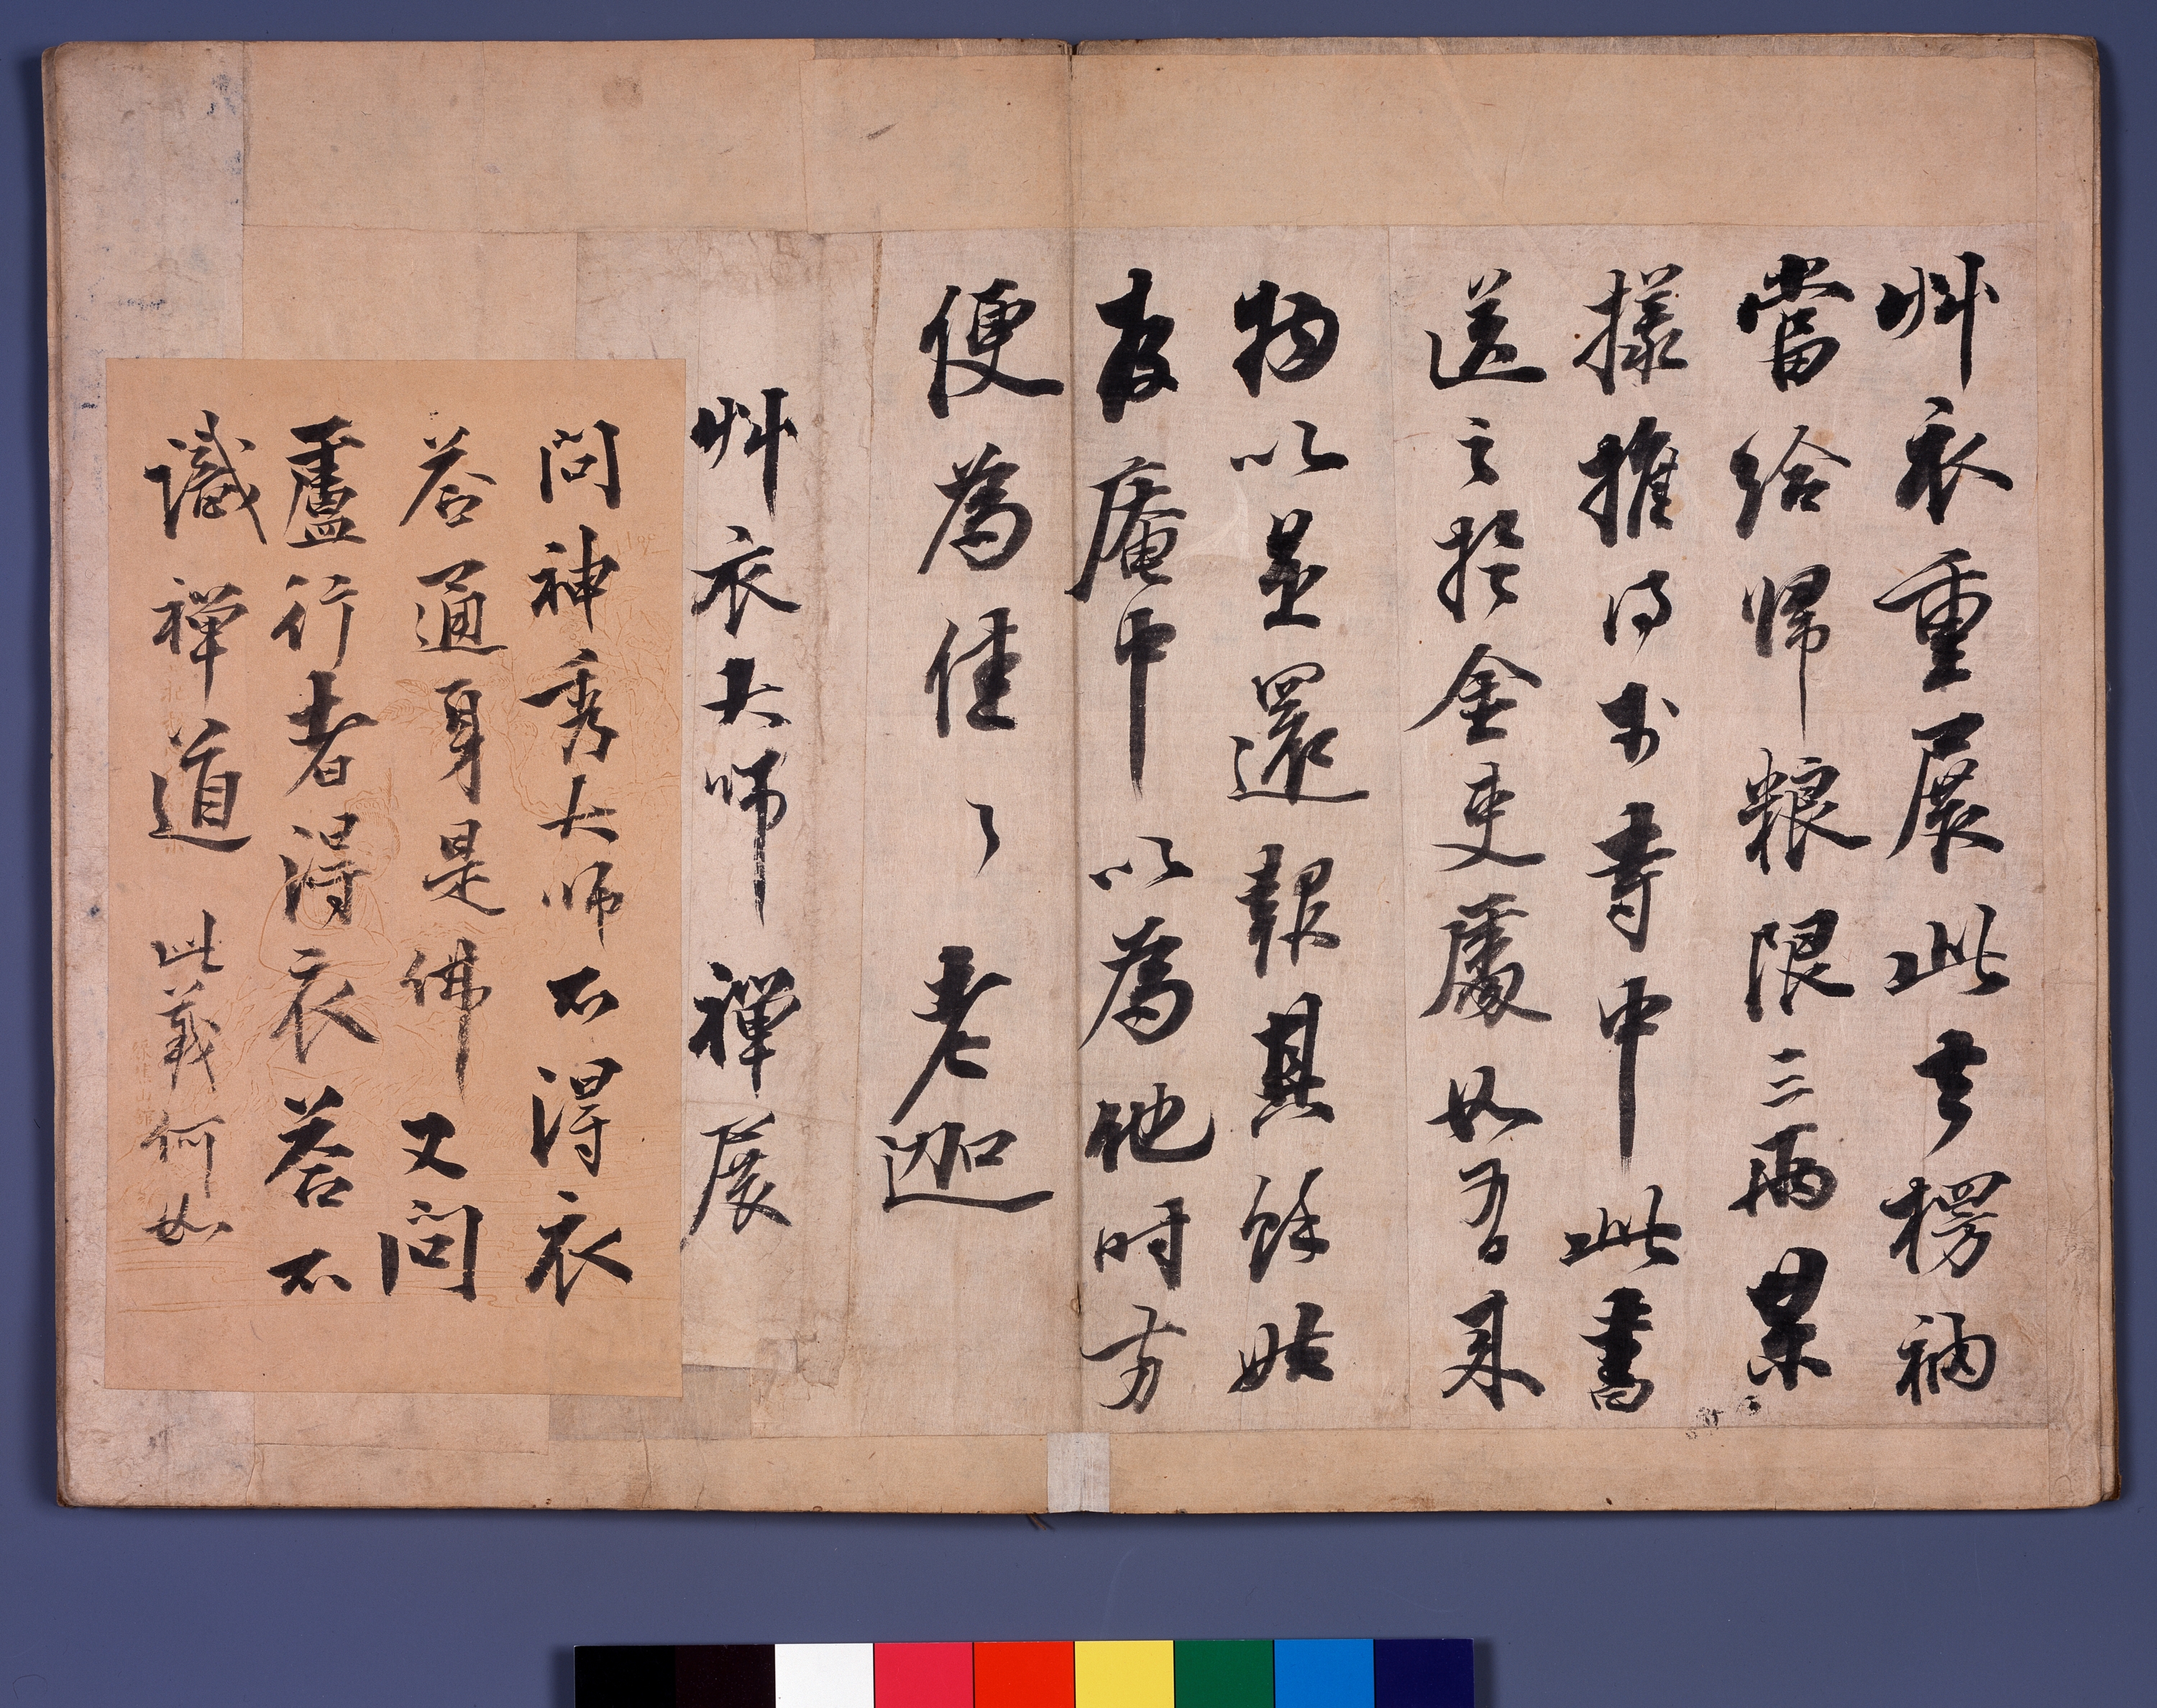 艸衣重展此去楞衲
當給歸粮限三兩果
樣推得於寺中此書
送之於金吏處如有来
物以並還報其餘姑

庵中以為他時方
便為佳々 老迦
艸衣大師 禪展
問神秀大師不得衣
答通身是佛又問
盧行者得衣答不
識禪道 此義何如